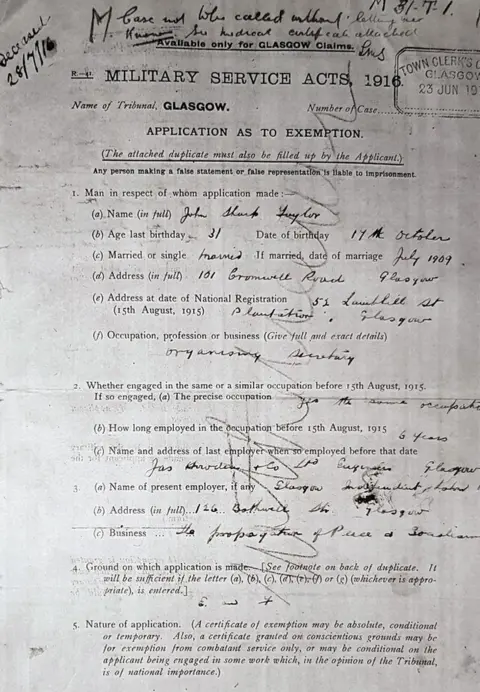 M 31. T. 1
Case not who called without letting me
know. See medical certificate attached
Available only for GLASGOW Claims.
deceased
28/7/16
TOWN CLERK'S
GLASGOW
23 JUN 19
R.—41. MILITARY SERVICE ACTS, 1916.
Name of Tribunal, GLASGOW. Number of Case
APPLICATION AS TO EXEMPTION.
(The attached duplicate must also be filled up by the Applicant.)
Any person making a false statement or false representation is liable to imprisonment.
1. Man in respect of whom application made :—
(a) Name (in full) John Sharp Taylor
(b) Age last birthday 31 Date of birthday 17th October
(c) Married or single married If married, date of marriage July 1909
(d) Address (in full) 101 Cromwell Road Glasgow
(e) Address at date of National Registration 52 St
(15th August, 1915) Plantation, Glasgow
(f) Occupation, profession or business (Give full and exact details)
organising secretary
2. Whether engaged in the same or a similar occupation before 15th August, 1915.
If so engaged, (a) The precise occupation the same occupation
(b) How long employed in the occupation before 15th August, 1915
6 years
(c) Name and address of last employer when so employed before that date
Jas Howden & Co Ltd Engineers Glasgow
3. (a) Name of present employer, if any Glasgow Independent Labour
(b) Address (in full)...126 Bothwell St. Glasgow
(c) Business ... The propagation of Peace & Socialism
4. Ground on which application is made.—[See footnote on back of duplicate. It
will be sufficient if the letter (a), (b), (c), (d), (e), (f) or (g) (whichever is appro-
priate), is entered.]
5. Nature of application. (A certificate of exemption may be absolute, conditional
or temporary. Also, a certificate granted on conscientious grounds may be
for exemption from combatant service only, or may be conditional on the
applicant being engaged in some work which, in the opinion of the Tribunal,
is of national importance.)